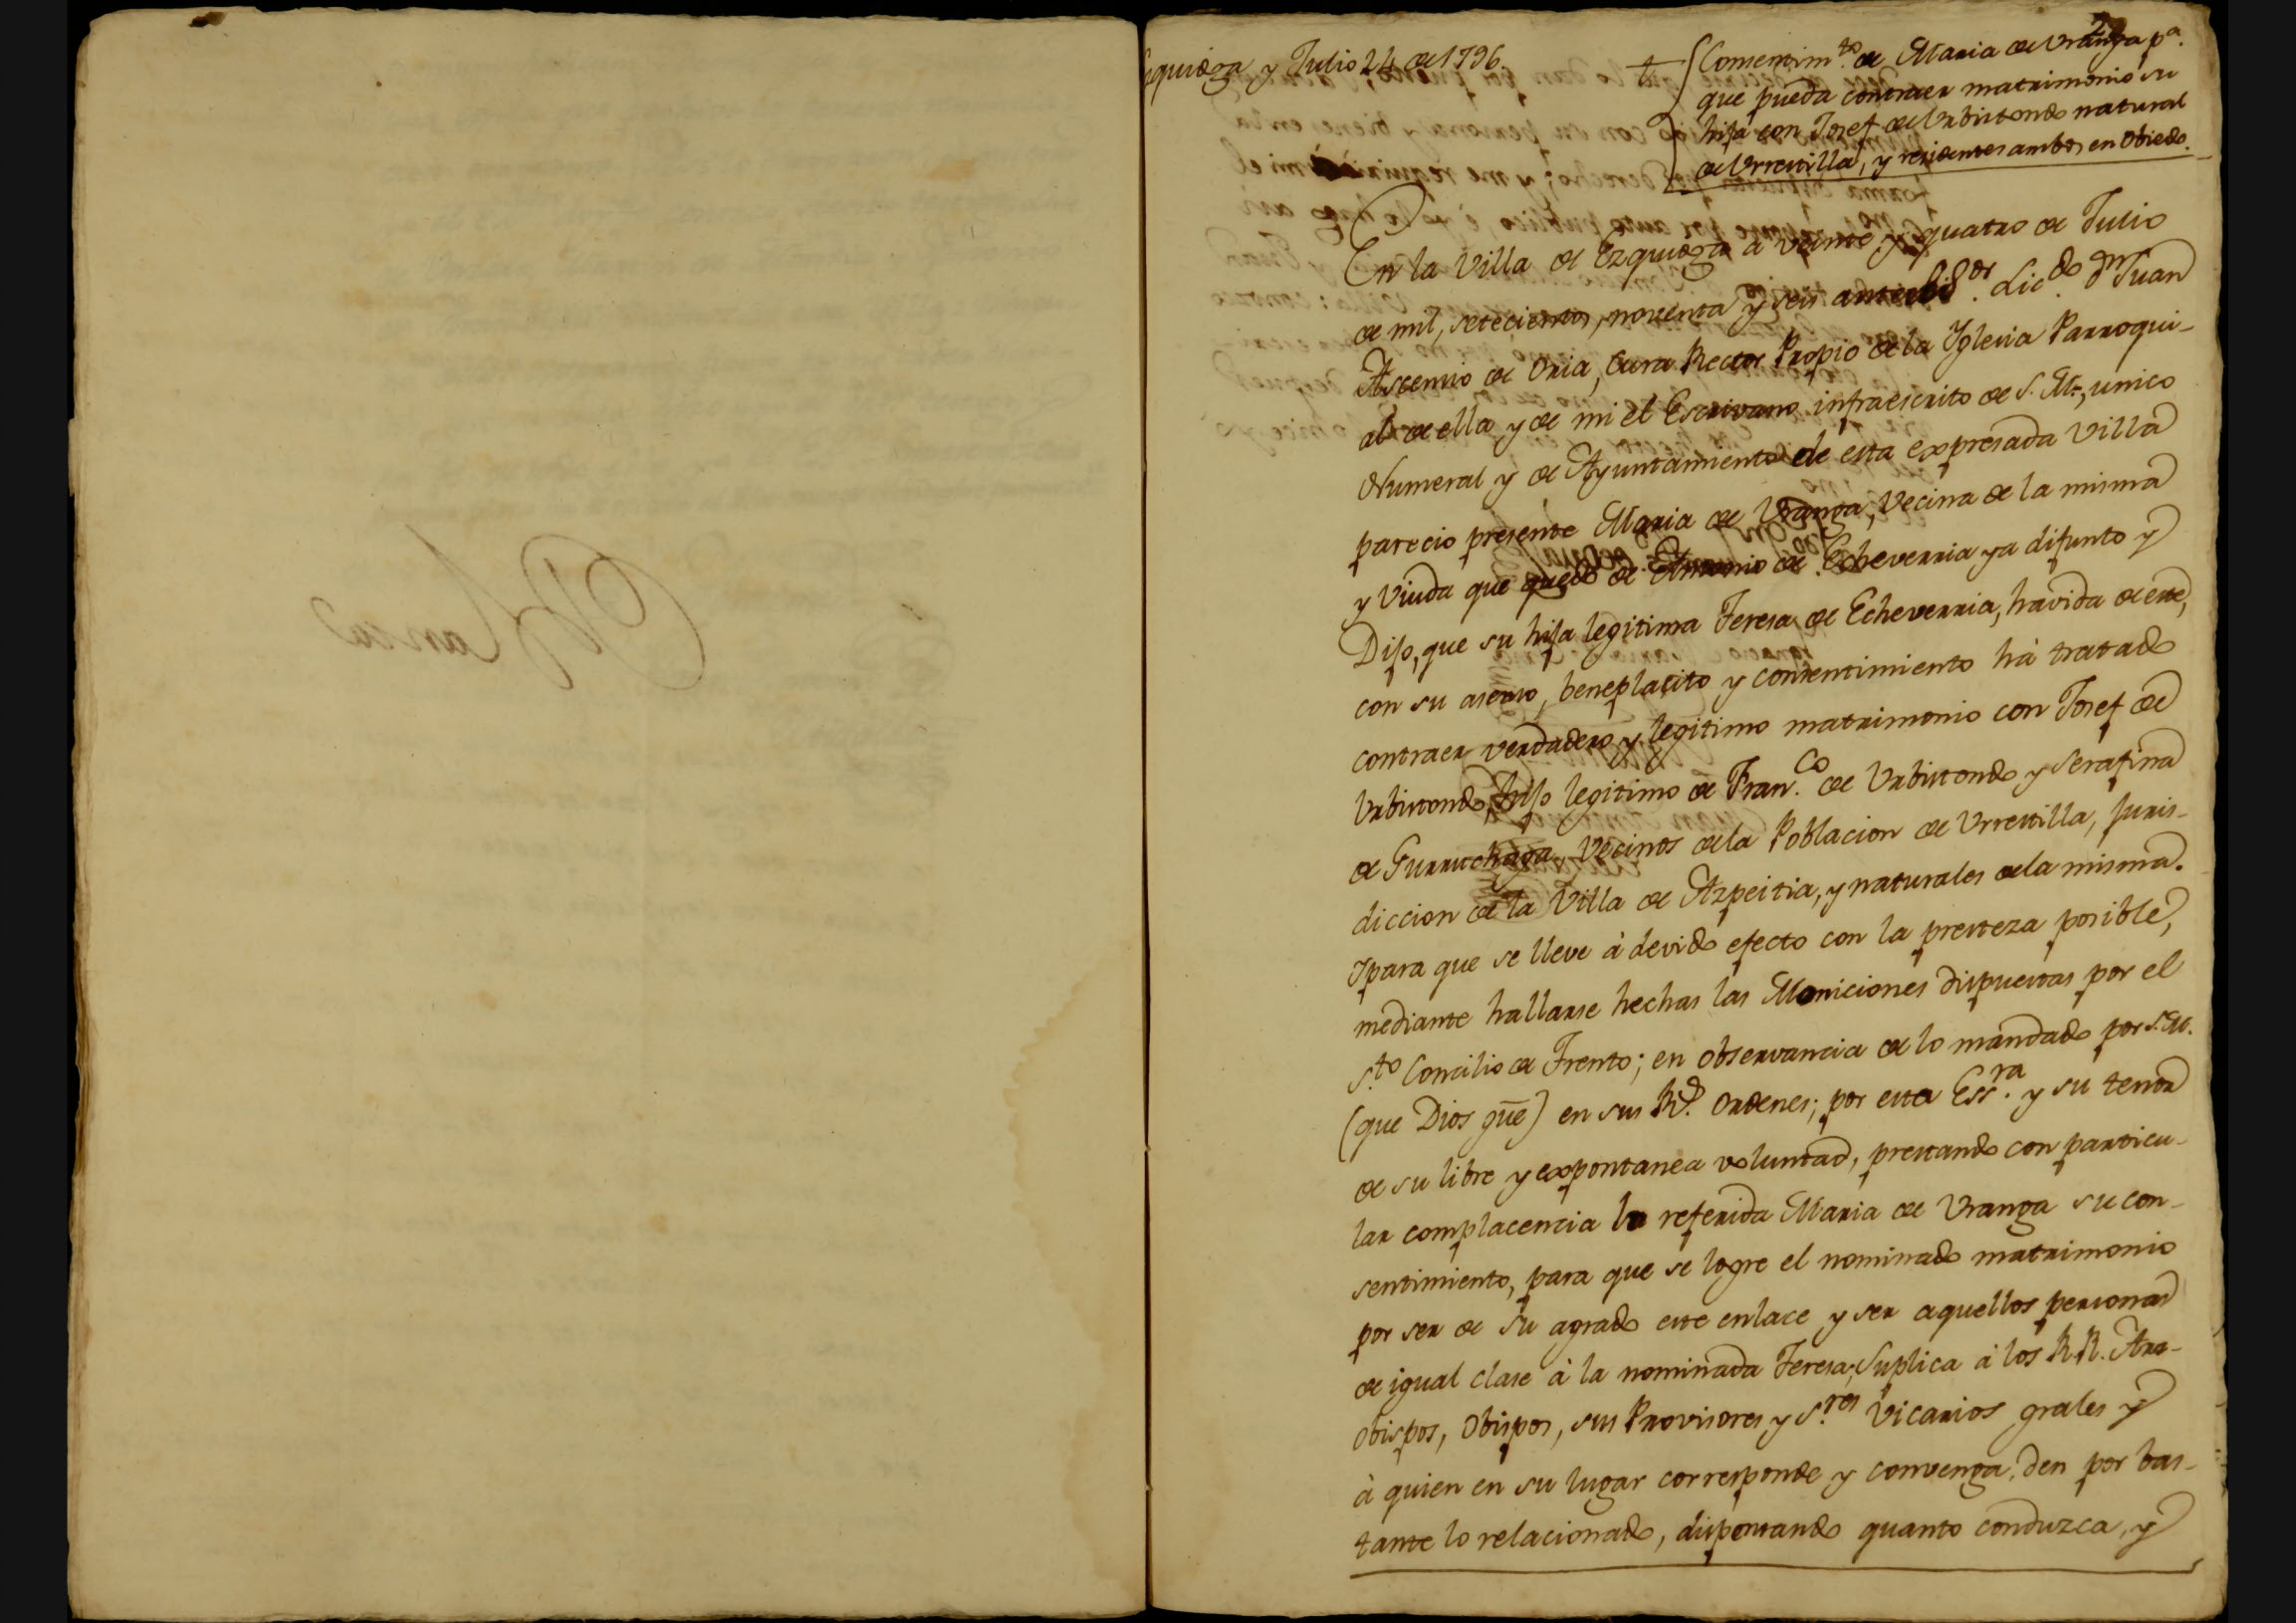 Ezquioga y Julio 24 de 1796.
Consentim.to de Maria de Vranga p.a
que pueda contraer matrimonio su
hija con Josef de Vrbistondo natural
de Vrrestilla, y residentes ambos en Obiedo.
En la Villa de Ezquioga à veinte y quatro de Julio
de mil, setecientos, noventa y seis ante el Lic.do Dn Juan
Ascensio de Oria, Cura Rector Propio de la Yglesia Parroqui-
al de ella y de mi el Escrivano infraescrito de S. M., unico
Numeral y de Ayuntamiento de esta expresada Villa
parecio presente Maria de Vranga, Vecina de la misma
y Viuda que quedó de Antonio de Echeverria ya difunto y
Dijo, que su hija legitima Teresa de Echeverria, havida de este,
con su asenso, beneplacito y consentimiento hà tratado
contraer verdadero y legitimo matrimonio con Josef de
Vrbistondo, hijo legitimo de Fran.co de Vrbistondo y Serafina
de Gurruchaga, Vecinos de la Poblacion de Vrrestilla, juris-
diccion de la Villa de Azpeitia, y naturales de la misma.
Ypara que se lleve à devido efecto con la presteza posible,
mediante hallarse hechas las Moniciones dispuestas por el
S.to Concilio de Trento; en observancia de lo mandado por S. M.
(que Dios gūe) en sus R.s Ordenes; por esta Ess.ra y su tenor
de su libre y expontanea voluntad, prestando con particu-
lar complacencia la referida Maria de Vranga su con-
sentimiento, para que se logre el nominado matrimonio
por ser de su agrado este enlace y ser aquellos personas
de igual clase à la nominada Teresa, Suplica à los R.R. Arzo-
obispos, Obispos, sus Provisores y S.res Vicarios grales y
à quien en su lugar corresponde y convenga, den por bas-
tante lo relacionado, dispensando quanto conduzca, y